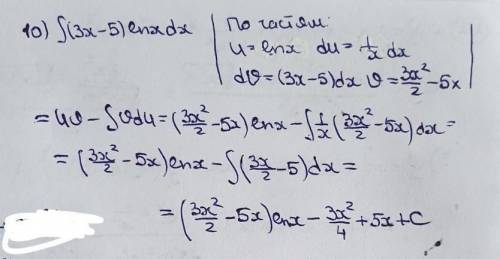 10) ∫(3x-5)lnxdx | По частям:
u=lnx du=1/x dx
dϑ=(3x-5)dx ϑ=3x²/2-5x
=uϑ-∫ϑdu=(3x²/2-5x)lnx-∫1/x(3x²/2-5x)dx=
=(3x²/2-5x)lnx-∫(3x/2-5)dx=
=(3x²/2-5x)lnx-3x²/4+5x+C